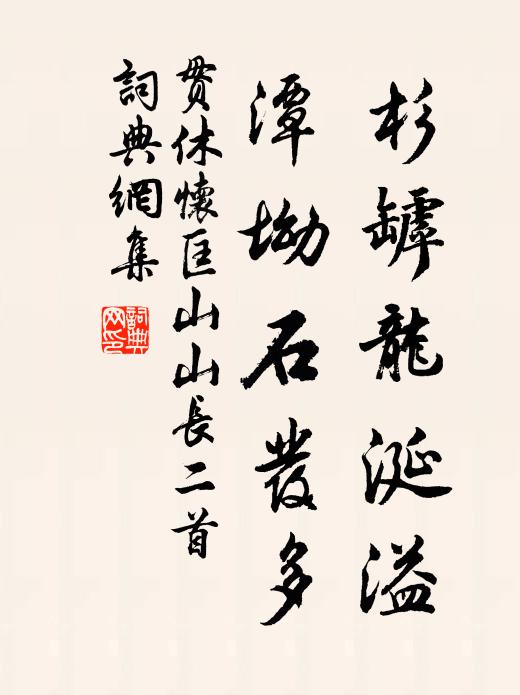 杉罅龍涎溢
潭坳石發多
貫休懷匡山山長二首
詞典網集
詞典網印